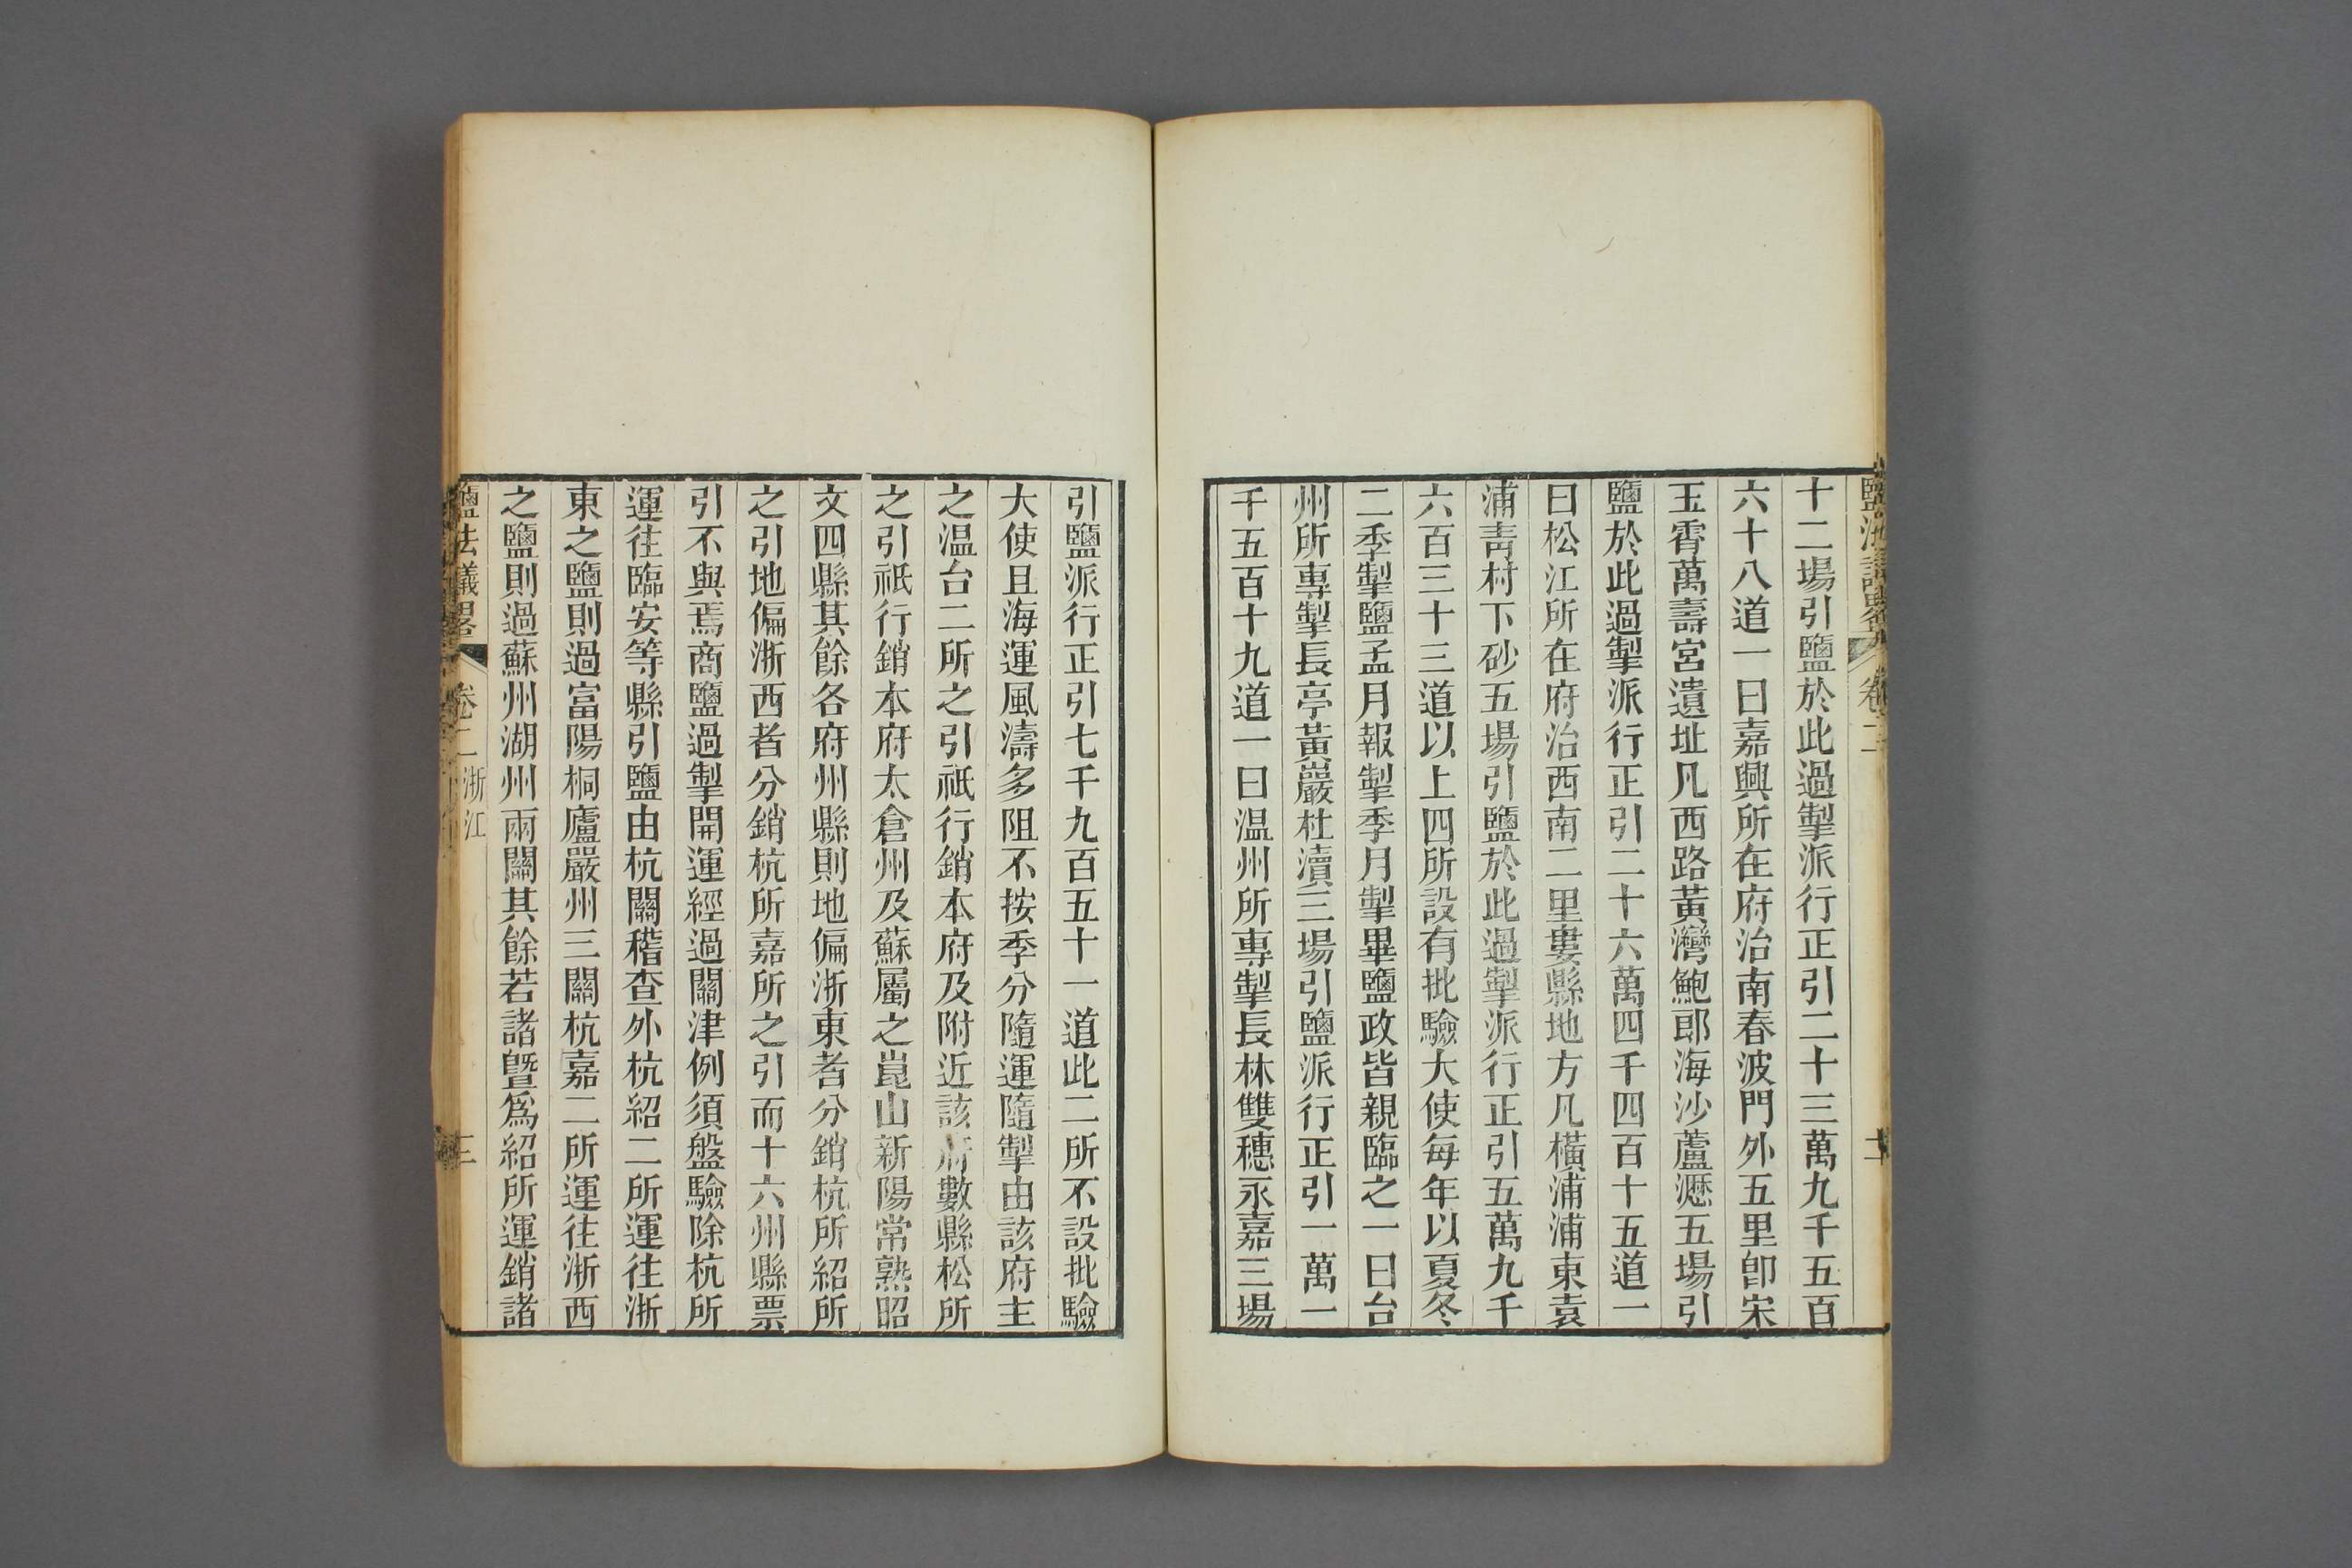 十二場引鹽於此過掣派行正引二十三萬九千五百
六十八道一曰嘉興所在府治南春波門外五里卽宋
玉霄萬壽宮遺址凡西路黃灣鮑郎海沙蘆瀝五場引
鹽於此過掣派行正引二十六萬四千四百十五道一
曰松江所在府治西南二里婁縣地方凡橫浦浦東袁
浦靑村下砂五場引鹽於此過掣派行正引五萬九千
六百三十三道以上四所設有批驗大使每年以夏冬
二季掣鹽孟月報掣季月掣畢鹽政皆親臨之一曰台
州所專掣長亭黃巖杜瀆三場引鹽派行正引一萬一
千五百十九道一曰温州所專掣長林雙穗永嘉三場
引鹽派行正引七千九百五十一道此二所不設批驗
大使且海運風濤多阻不按季分隨運隨掣由該府主
之温台二所之引祇行銷本府及附近該府數縣松所
之引祇行銷本府太倉州及蘇屬之崑山新陽常熟昭
文四縣其餘各府州縣則地偏浙東者分銷杭所紹所
之引地偏浙西者分銷杭所嘉所之引而十六州縣票
引不與焉商鹽過掣開運經過關津例須盤驗除杭所
運往臨安等縣引鹽由杭關稽查外杭紹二所運往浙
東之鹽則過富陽桐廬嚴州三關杭嘉二所運往浙西
之鹽則過蘇州湖州兩關其餘若諸曁爲紹所運銷諸
鹽法議畧 卷二 浙江 三